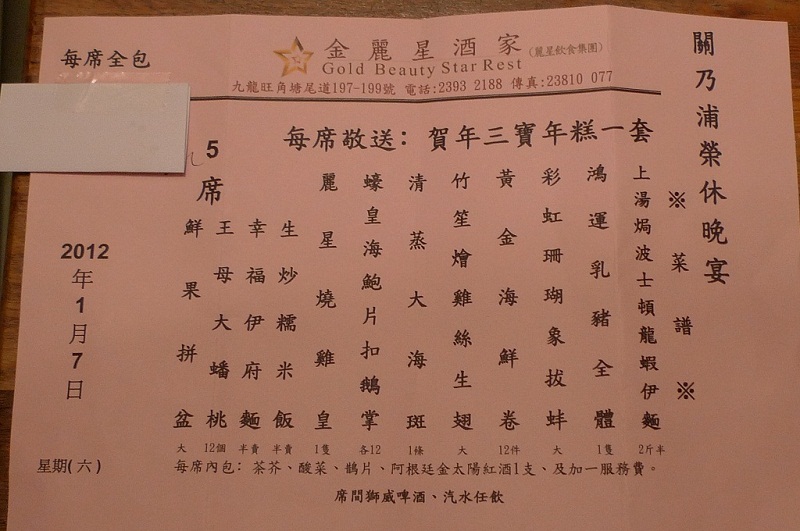 關乃浦榮休晚宴
※菜譜※
金麗星酒家(麗星飲食集團)
Gold Beauty Star Rest
九龍旺角塘尾道197-199號 電話:2393 2188 傳真:23810 077
每席全包
每席敬送：賀年三寶年糕一套
5席
上湯焗波士頓龍蝦伊麵 2斤半
鴻運乳豬全體 1隻
彩虹珊瑚象拔蚌 大
黃金海鮮卷 12件
竹笙燴雞絲生翅 大
清蒸大海斑 1條
蠔皇海鮑片扣鵝掌 各12
麗星燒雞皇 1隻
生炒糯米飯 半賣
幸福伊府麵 半賣
王母大蟠桃 12個
鮮果拼盆 大
2012年1月7日
星期(六)
每席內包：茶芥、酸菜、鵲片、阿根廷金太陽紅酒1支、及加一服務費。
席間獅威啤酒、汽水任飲